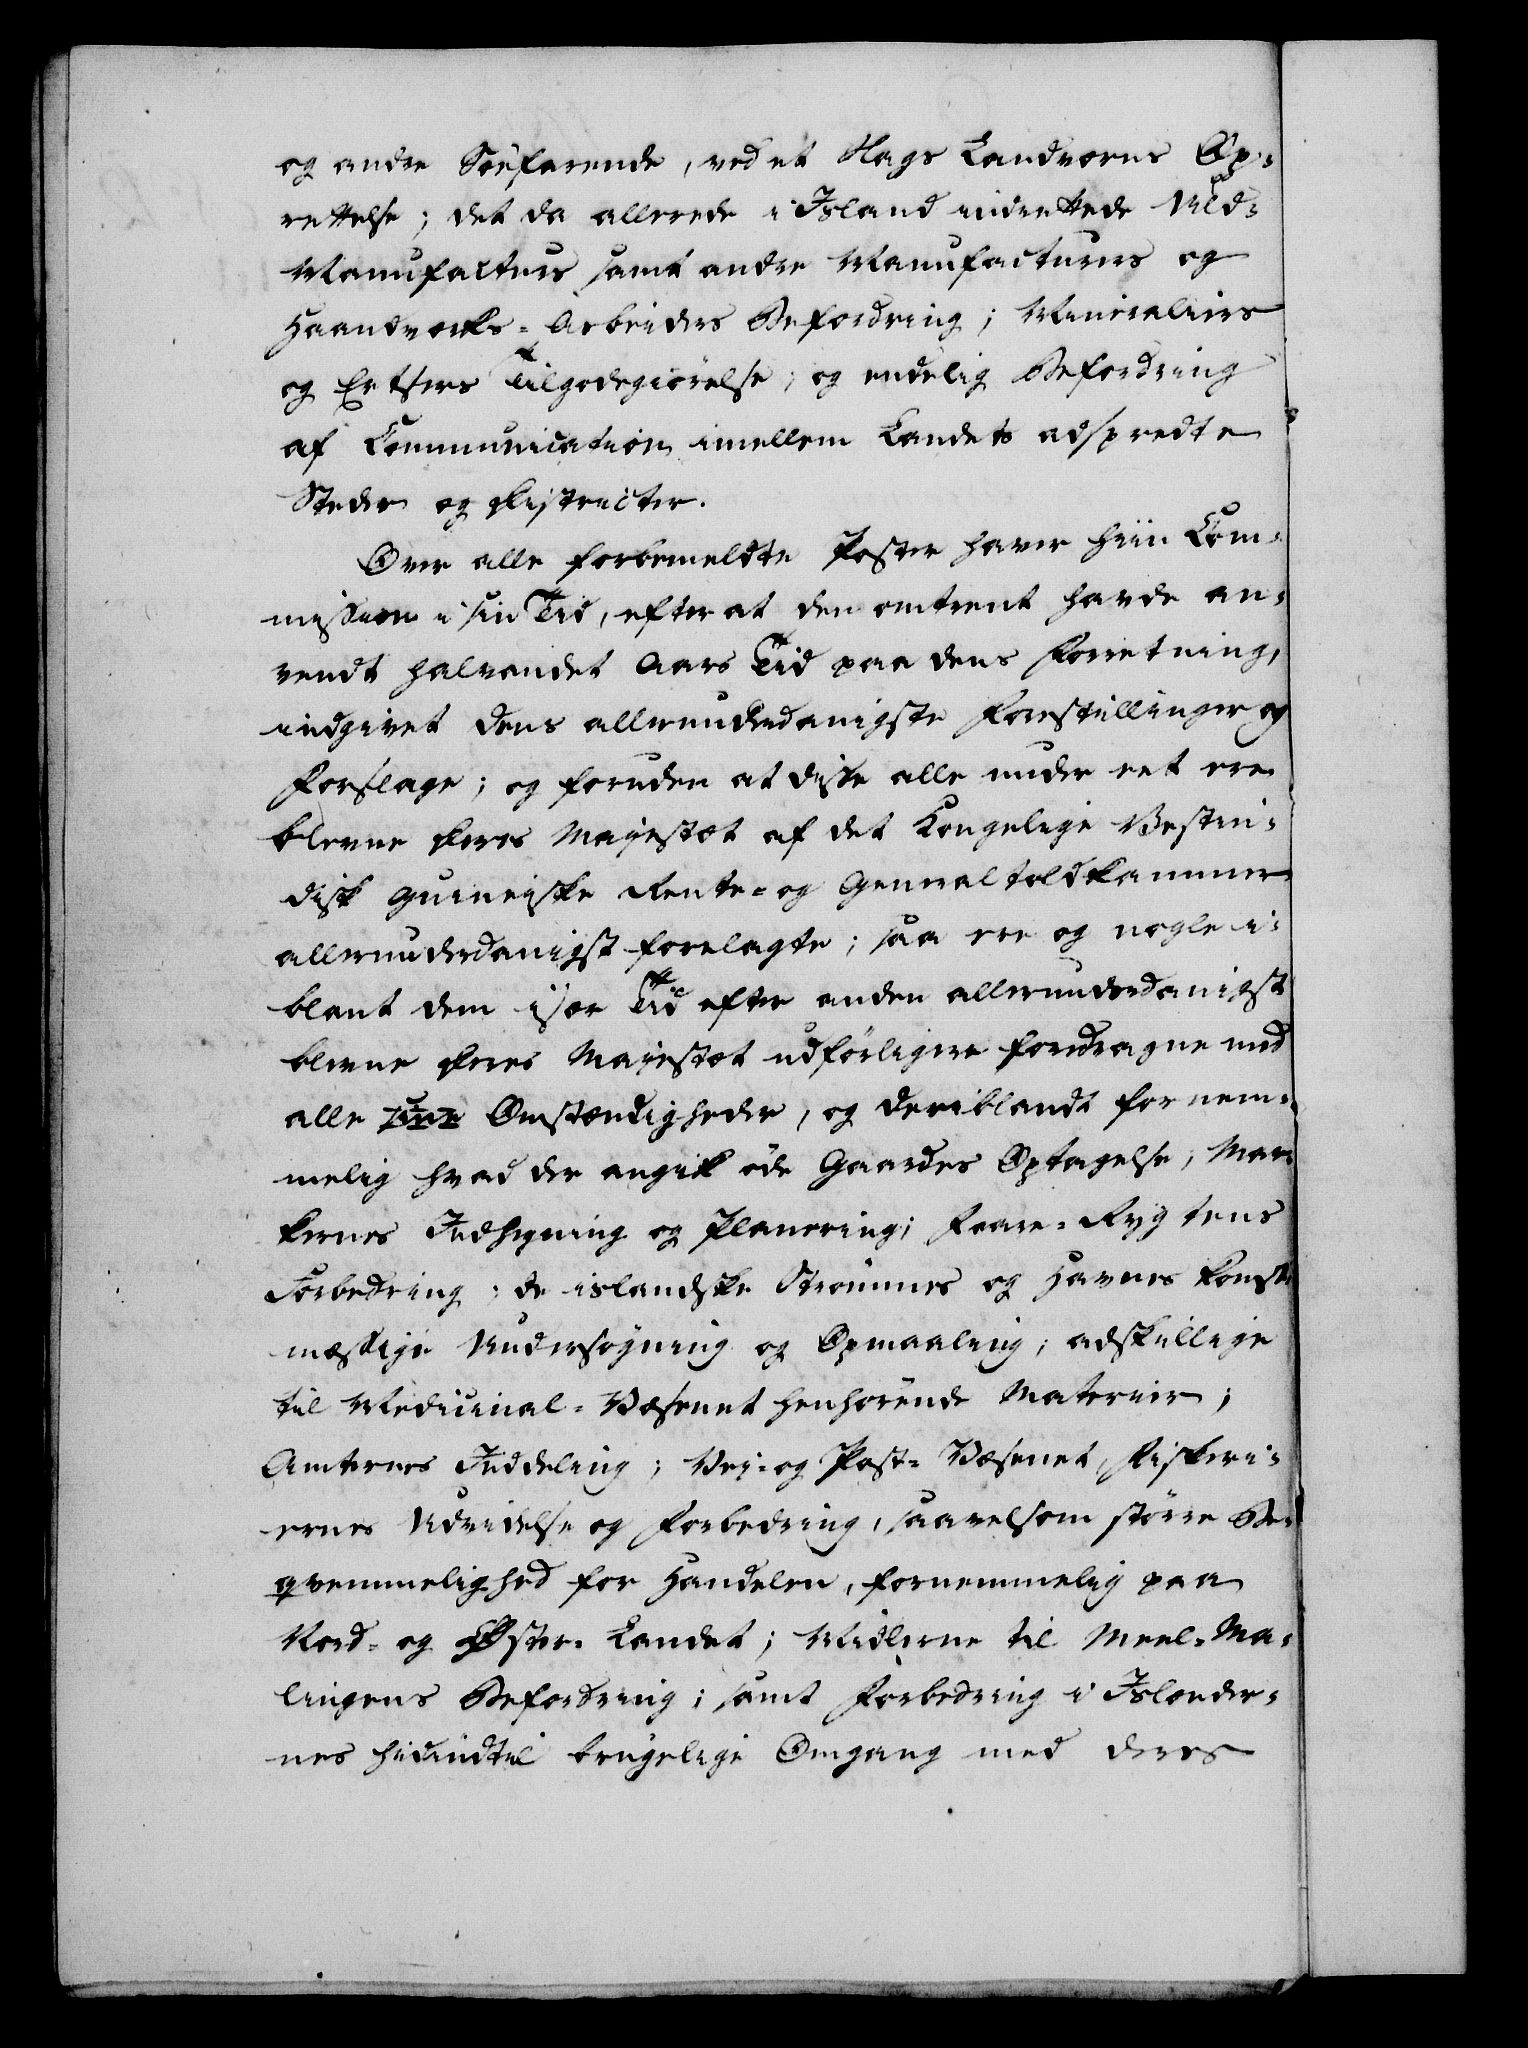 og andre Söefarende, ved et Slags Landværns Op-
rettelse; det da allerede i Island indrettede Uld-
Manufacturs samt andre Manufacturers og
Haandværks-Arbeiders Befordring; Mineraliers
og Ertsers Tilgodegiörelse; og endelig Befordring
af Communication imellem Landets adspredte
Steder og Districter.
Over alle forbemeldte Poster haver hiin Com-
mission i sin Tid, efter at den omtrent havde an-
vendt halvandet Aars Tid paa dens Forretning,
indgivet dens allerunderdanigste Forestillinger og
Forslage; og foruden at disse alle under eet ere
blevne Deres Majestæt af det Kongelige Vestin-
disk guineiske Rente- og General toldkammer
allerunderdanigst forelagte; saa ere og nogle i-
blant dem især Tid efter anden allerunderdanigst
blevne Deres Majestæt udförligere foredragne med
alle Omstændigheder, og deriblandt fornem-
melig hvad der angik öde Gaardes Optagelse; Mar-
kernes Indhegning og Planering; Faare-Rygtens
Forbedring; de islandske Strömmes og Havnes konst-
mæssige Undersögning og Opmaaling; adskillige
til Medicinal-Væsenet henhörende Materier;
Amternes Inddeling; Vei- og Post-Væsenet, Fiskeri-
ernes Udvidelse og Forbedring, saavelsom större Be-
qvemmelighed for Handelen, fornemmelig paa
Nord- og Øster-Landet; Midlerne til Meel-Ma-
lingens Befordring; samt Forbedring i Islænder-
nes hidindtil brugelige Omgang med deres